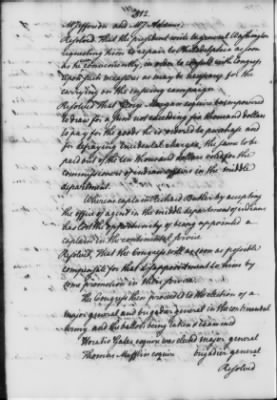 212.
Mr Jefferson and Mr Adams.
Resolved, That the president write to general Washington
requesting him to repair to Philadelphia as soon
as he conveniently, in order to consult with Congress,
upon such measures as may be necessary for the
carrying on the ensuing campaign.
Resolved That George Morgan esquire be empowered
to draw for a sum not exceeding five thousand dollars
to pay for the goods he is ordered to purchase and
for defraying incidental charges, the same to be
paid out of the ten thousand dollars voted for the
commissioners of indian affairs in the middle
department.
Whereas captain Richard Butler by accepting
the office of agent in the middle department of indians
has lost the opportunity of being appointed a
captain in the continental service
Resolved, That the Congress will as soon as possible
compensate for that disappointment to him by
some promotion in their service.
The Congress then proceeded to the election of a
major general and brigadier general in the continental
army and the ballots being taken & examined
Horatio Gates esquire was elected major general
Thomas Mifflin esquire brigadier general
Resolved